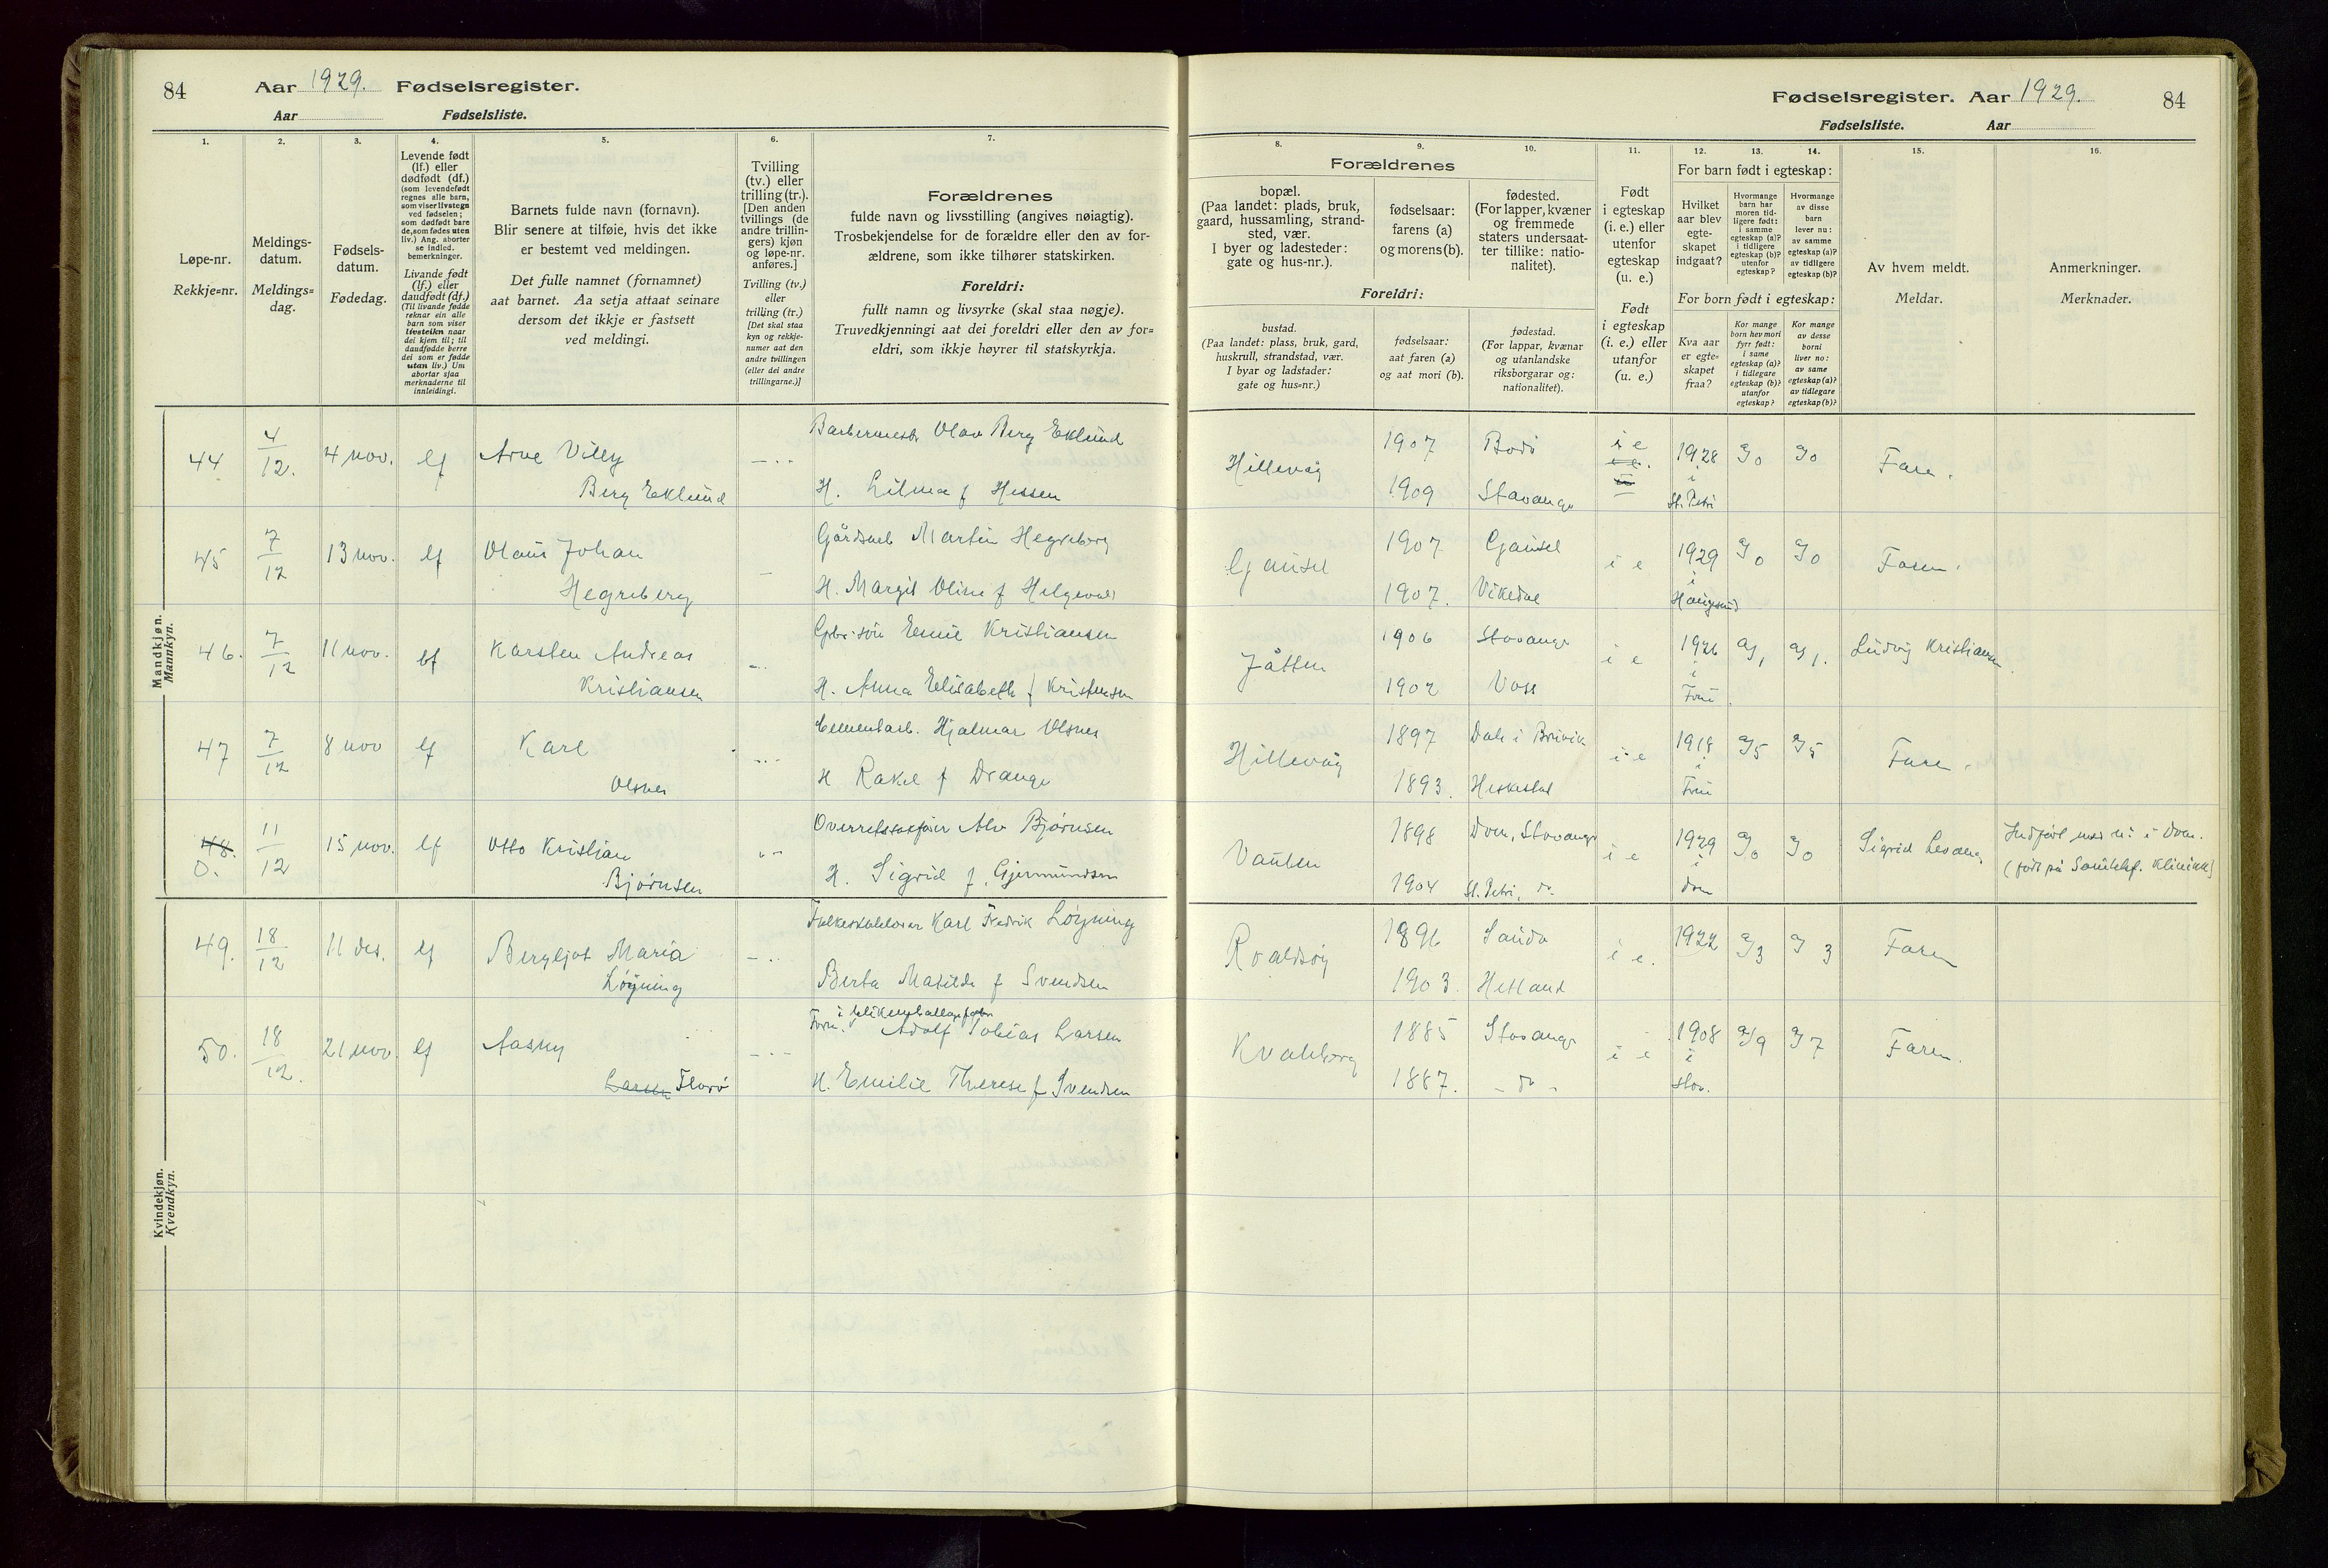 84 Aar 1929. Fødselsregister.
Aar Fødselsliste.
1. 2. 3. 4. 5. 6. 7.
Løpe-nr.
Rekkje=nr.
Meldings-
datum.
Meldings=
dag.
Fødsels-
datum.
Fødedag.
Levende født
(lf.) eller
dødfødt (df.)
(som levendefødt
regnes alle barn,
som viser livstegn
ved fødselen;
som dødfødt bare
de, som fødes uten
liv.) Ang. aborter
se indled.
bemerkninger.
Livande født
(lf.) eller
daudfødt (df.)
(Til livande fødde
reknar ein alle
barn som viser
livsteikn naar
dei kjem til; til
daudfødde berre
dei som er fødde
utan liv.) Um
abortar sjaa
merknaderne til
innleidingi.
Barnets fulde navn (fornavn).
Blir senere at tilføie, hvis det ikke
er bestemt ved meldingen.
Det fulle namnet (fornamnet)
aat barnet. Aa setja attaat seinare
dersom det ikkje er fastsett
ved meldingi.
Tvilling
(tv.) eller
trilling (tr.).
[Den anden
tvillings (de
andre trillin-
gers) kjøn
og løpe-nr.
anføres.]
Tvilling (tv.)
eller
trilling (tr.)
[Det skal staa
kyn og rekkje-
numer aat den
andre tvillingen
(eller dei andre
trillingarne.)]
Forældrenes
fulde navn og livsstilling (angives nøiagtig).
Trosbekjendelse for de forældre eller den av for-
ældrene, som ikke tilhører statskirken.
Foreldri:
fullt namn og livsyrke (skal staa nøgje).
Truvedkjenningi aat dei foreldri eller den av for=
eldri, som ikkje høyrer til statskyrkja.
Mandkjøn.
Mannkyn.
44 4/12. 4 nov. lf Arne Villy Berg Eklund
Olav Berg Eklund
H. f Hessen
45 7/12 13 nov. lf Olaus Johan
Hegreberg
Martin Hegreberg
H. Margit Oline f
46. 7/12 11 nov. lf Karsten Andreas
Kristiansen
Emil Kristiansen
H. Anna Elisabeth f Kristensen
47 7/12 8 nov lf Karl
Olsnes
Cementarb. Hjalmar Olsnes
H Rakel f Drange
48. 0. 11/12 15 nov. lf Otto Kristian
Bjørnsen
Overretssakfører Alv Bjørnsen
H. Sigrid f. Gjermundsen
Kvindekjøn.
Kvendkyn.
49. 18/12 11 des. lf Bergljot Maria
Løyning
Karl Fredrik Løyning
Berta Matilde f Svendsen
50. 18/12. 21 nov. lf Aasny
Larsen Florø
Adolf Tobias Larsen
H. Emilie Therese f Svendsen
Fødselsregister. Aar 1929. 84
Fødselsliste. Aar
8. 9. 10. 11. 12. 13. 14. 15. 16.
Forældrenes
bopæl.
(Paa landet: plads, bruk,
gaard, hussamling, strand-
sted, vær.
I byer og ladesteder:
gate og hus-nr.).
fødselsaar:
farens (a)
og morens (b).
fødested.
(For lapper, kvæner
og fremmede
staters undersaat-
ter tillike: natio-
nalitet).
Foreldri:
bustad.
(Paa landet: plass, bruk, gard,
huskrull, strandstad, vær.
I byar og ladstader:
gate og hus=nr.)
fødselsaar:
aat faren (a)
og aat mori (b).
fødestad.
(For lappar, kvænar
og utanlandske
riksborgarar og:
nationalitet).
Født
i egteskap
(i. e.) eller
utenfor
egteskap
(u. e.)
Født
i egteskap
(i. e.) eller
utanfor
(u. e.)
For barn født i egteskap:
Hvilket
aar blev
egte-
skapet
indgaat?
Hvormange
barn har
moren tid-
ligere født:
i samme
egteskap (a)?
i tidligere
egteskap (b)?
utenfor
egteskap?
Hvormange
av disse
barn
lever nu:
av samme
egteskap (a)?
av tidligere
egteskap (b)?
For born født i egteskap:
Kva aar
er egte=
skapet
fraa?
Kor mange
born hev mori
fyrr født:
i same
egteskap (a)?
i tidlegare
egteskap (b)?
utanfor
egteskap?
Kor mange
av desse
borni
liver no:
av same
egteskap (a)?
av tidlegare
egteskap (b)?
Av hvem meldt.
Meldar.
Anmerkninger.
Merknader.
Hillevåg 1907 Bodø i e 1928 Faren.
1909 Stavanger i St. Petri
Gausel 1907 Gausel i e 1929 Faren.
1907. Vikedal i Haugesund
Jåtten 1906 Stavanger i e 1926 Ludvig Kristiansen
1902 Voss i
Hillevåg 1897 i e Faren.
1893. Heskestad i
Vaulen 1898 Dom, Stavanger i e 1929 Sigrid
1904 St. Petri, do i Dom
Indført med n: i Dom.
(født på Sanitetsf. Klinikk)
Roaldsøy 1896 Sauda i e. 1922 Faren
1903. Hetland
Kvaleberg 1885 Stavanger i e 1908 Faren.
1887. - do - i Stav.